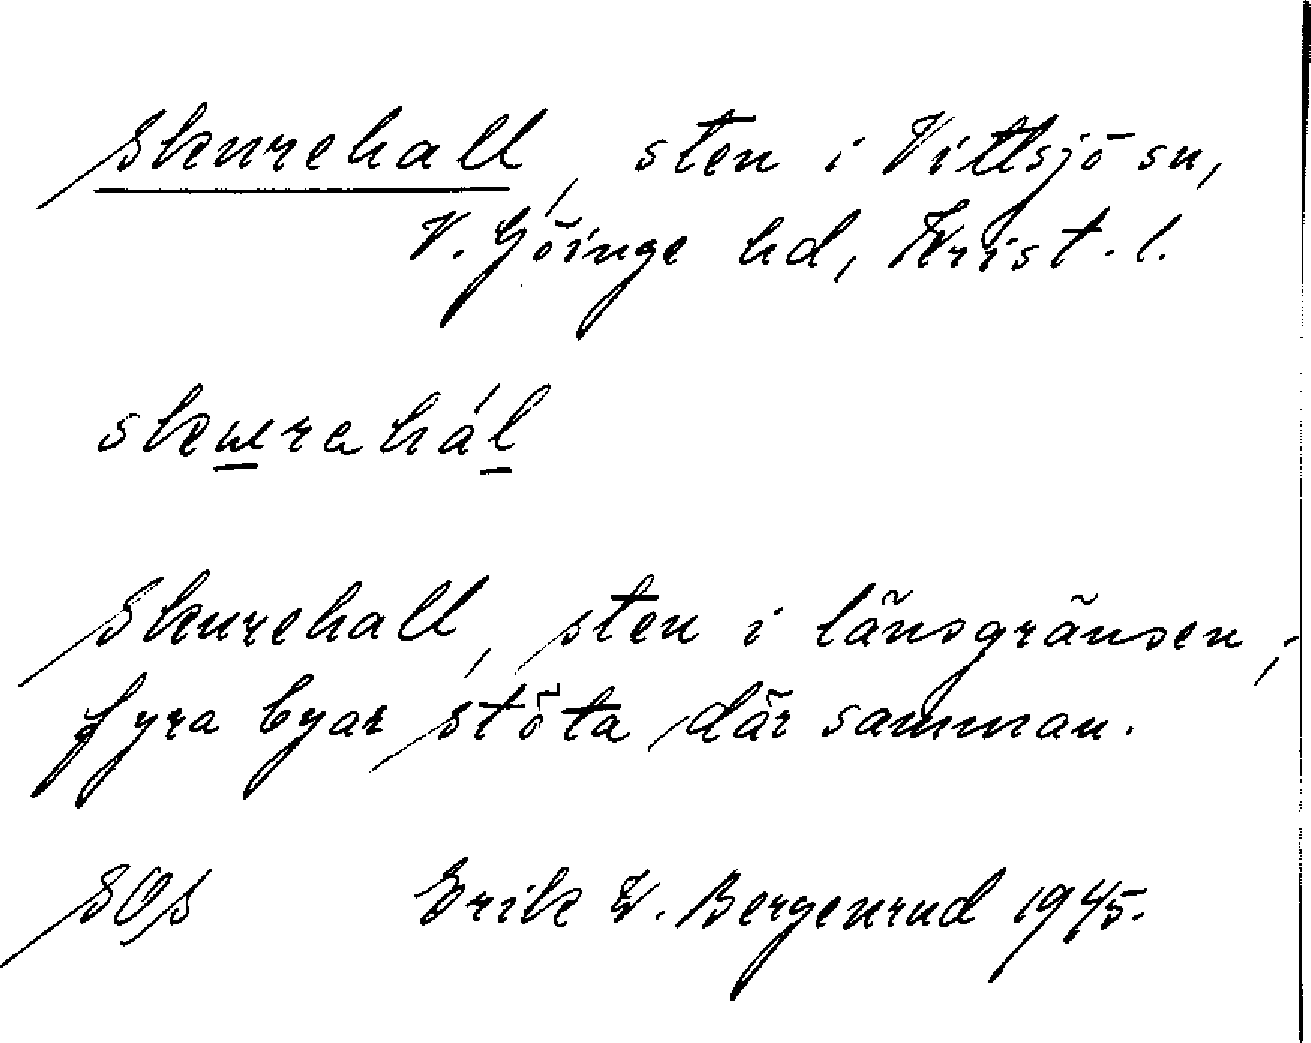 Skurehall, sten i Vittsjö sn,
V. Göinge hd, Krist. l.
skurahál
Skurehall, sten i länsgränsen;
fyra byar stöta där samman.
SOS Erik W. Bergenrud 1945.